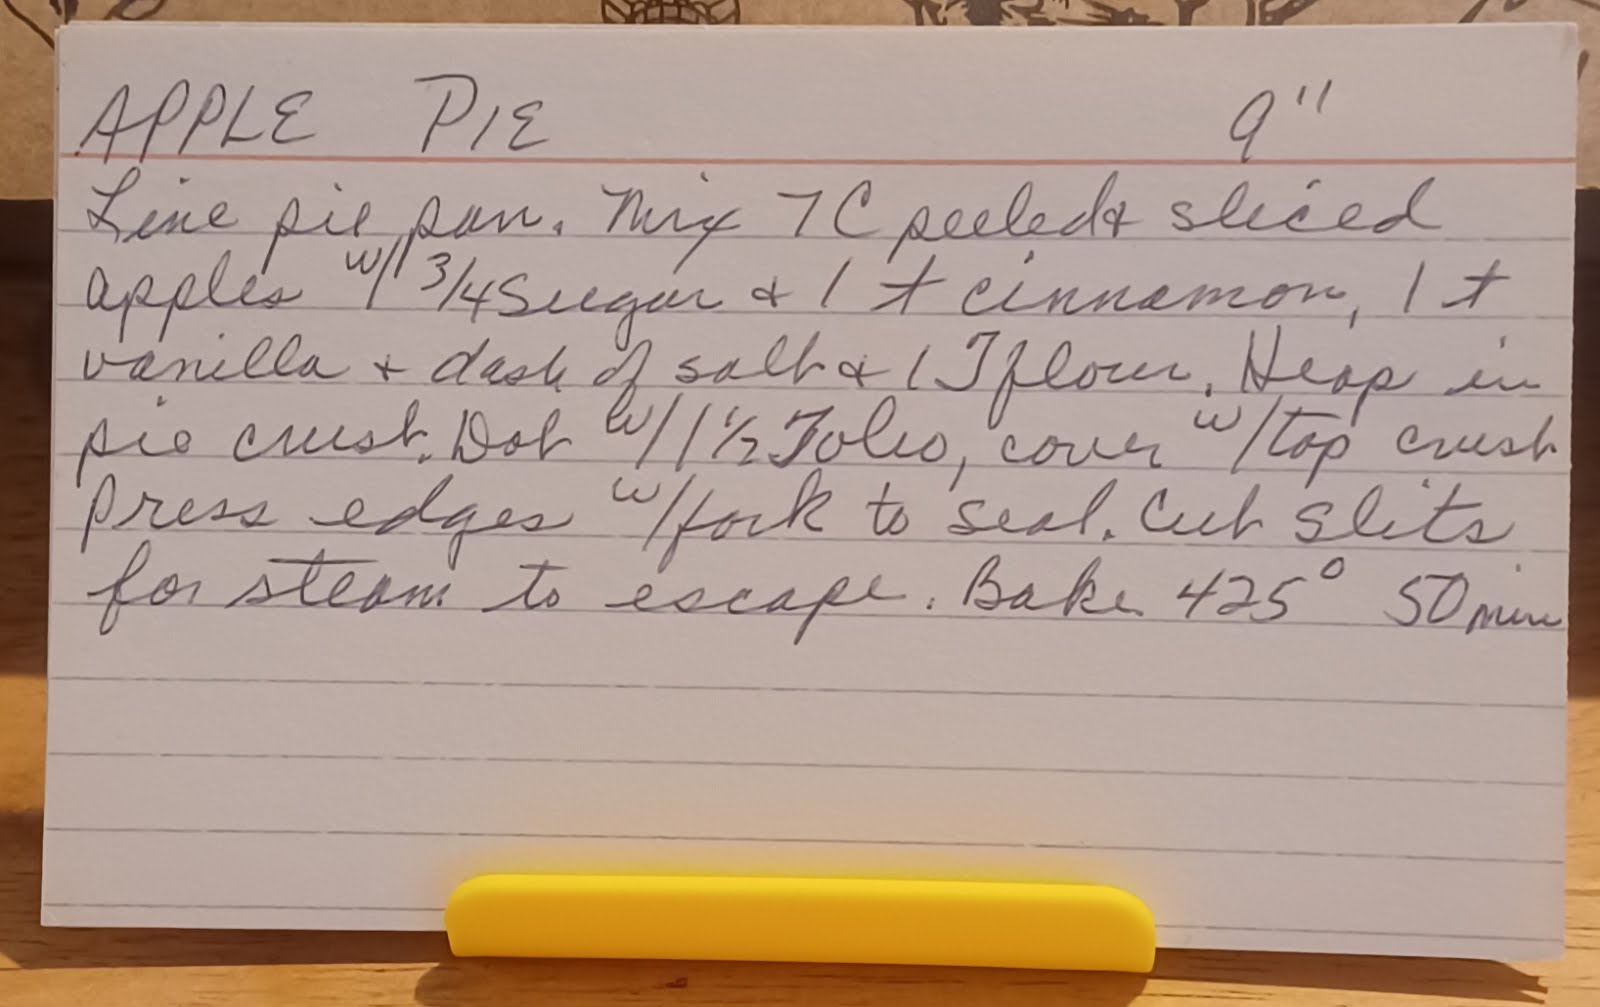 APPLE PIE 9"
Line pie pan. Mix 7 C peeled & sliced
apples w/ 3/4 Sugar & 1 t cinnamon, 1 t
vanilla + dash of salt & 1 T flour. Heap in
pie crust. Dot w/ 1 1/2 T oleo, cover w/ top crust
press edges w/ fork to seal. Cut slits
for steam to escape. Bake 425° 50 min